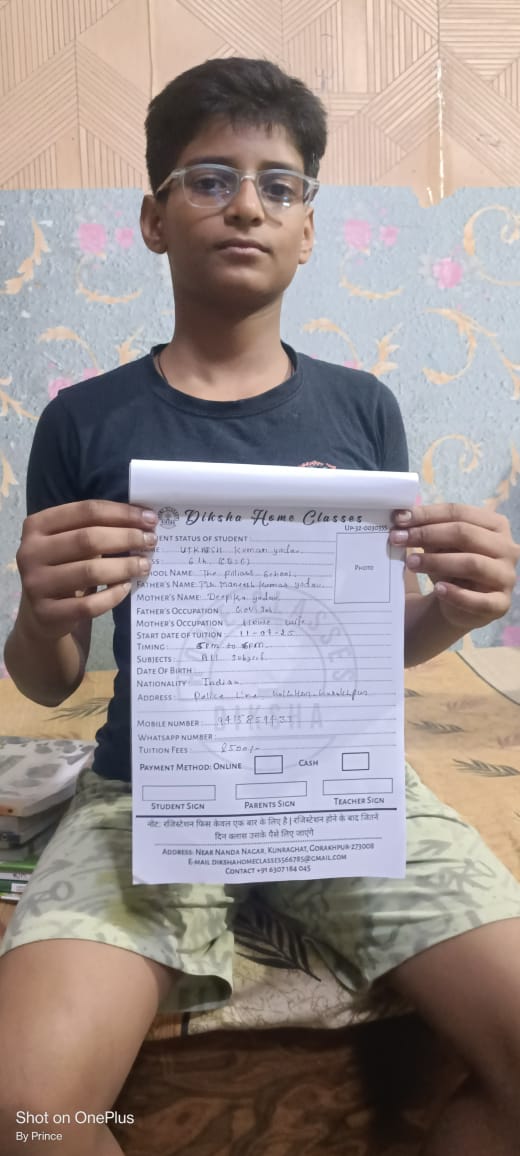 Diksha Home Classes
UP-32-0030355
ENT STATUS OF STUDENT
ME: UTKRESH Kumar yadav
SS: 6th (CBSE)
HOOL NAME: The pillars School
FATHER'S NAME: Mr. Maneesh Kumar yadav
MOTHER'S NAME: Deepika yadav
FATHER'S OCCUPATION: Gov.Job
MOTHER'S OCCUPATION: House wife
START DATE OF TUITION: 11-07-25
TIMING: 5pm to 6pm
SUBJECTS: All Subject
DATE OF BIRTH
NATIONALITY: Indian
ADDRESS: Police Line
MOBILE NUMBER:
WHATSAPP NUMBER:
TUITION FEES: 2500/-
PAYMENT METHOD: ONLINE CASH
PHOTO
STUDENT SIGN PARENTS SIGN TEACHER SIGN
नोट: रजिस्टेशन फिस केवल एक बार के लिए है | रजिस्टेशन होने के बाद जितने
दिन क्लास उसके पैसे लिए जाएंगे
ADDRESS: NEAR NANDA NAGAR, KUNRAGHAT, GORAKHPUR-273008
E-MAIL DIKSHAHOMECLASSES566785@GMAIL.COM
CONTACT +91 6307 184 045
DIKSHA
CLASSES
Shot on OnePlus
By Prince